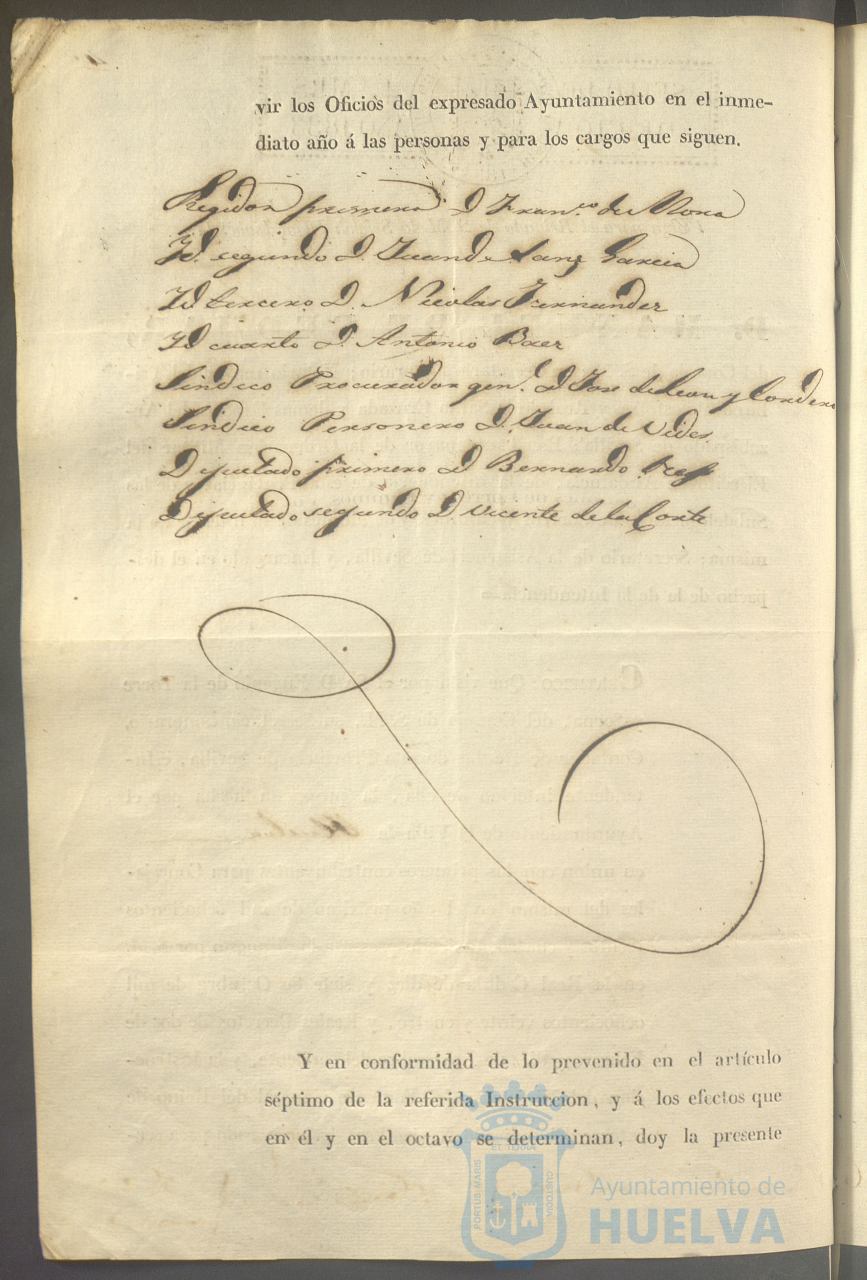 vir los Oficios del expresado Ayuntamiento en el inme-
diato año á las personas y para los cargos que siguen.
Regidor primero D Fran.co de Mora
Yd. segundo D. Juan de Sanz Garcia
Yd tercero D. Nicolas Fernandez
Yd cuarto D. Antonio Baez
Sindico Procurador gen.l D Jose de Leon y Cordero
Sindico Personero D. Juan de Vides
Diputado primero D Bernardo
Diputado segundo D. Vicente de la Corte
Y en conformidad de lo prevenido en el artículo
séptimo de la referida Instruccion, y á los efectos que
en él y en el octavo se determinan, doy la presente
PORTUS MARIS
ET TERRÆ
CUSTODIA
Ayuntamiento de
HUELVA